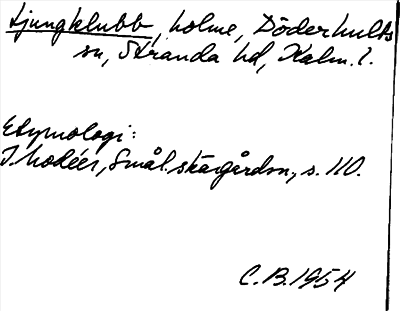 Ljungklubb, holme, Döderhults
sn, Stranda hd, Kalm. l.
Etymologi:
I. Modéer, Smål. skärgårdsn., s. 110.
C.B. 1954